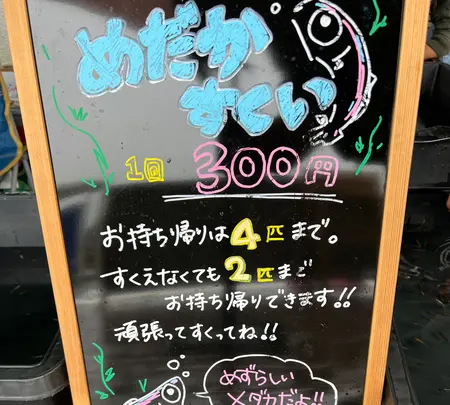 めだか
すくい
1回 300円
お持ち帰りは4匹まで。
すくえなくても2匹まで
お持ち帰りできます!!
頑張ってすくってね!!
めずらしい
メダカだよ!!